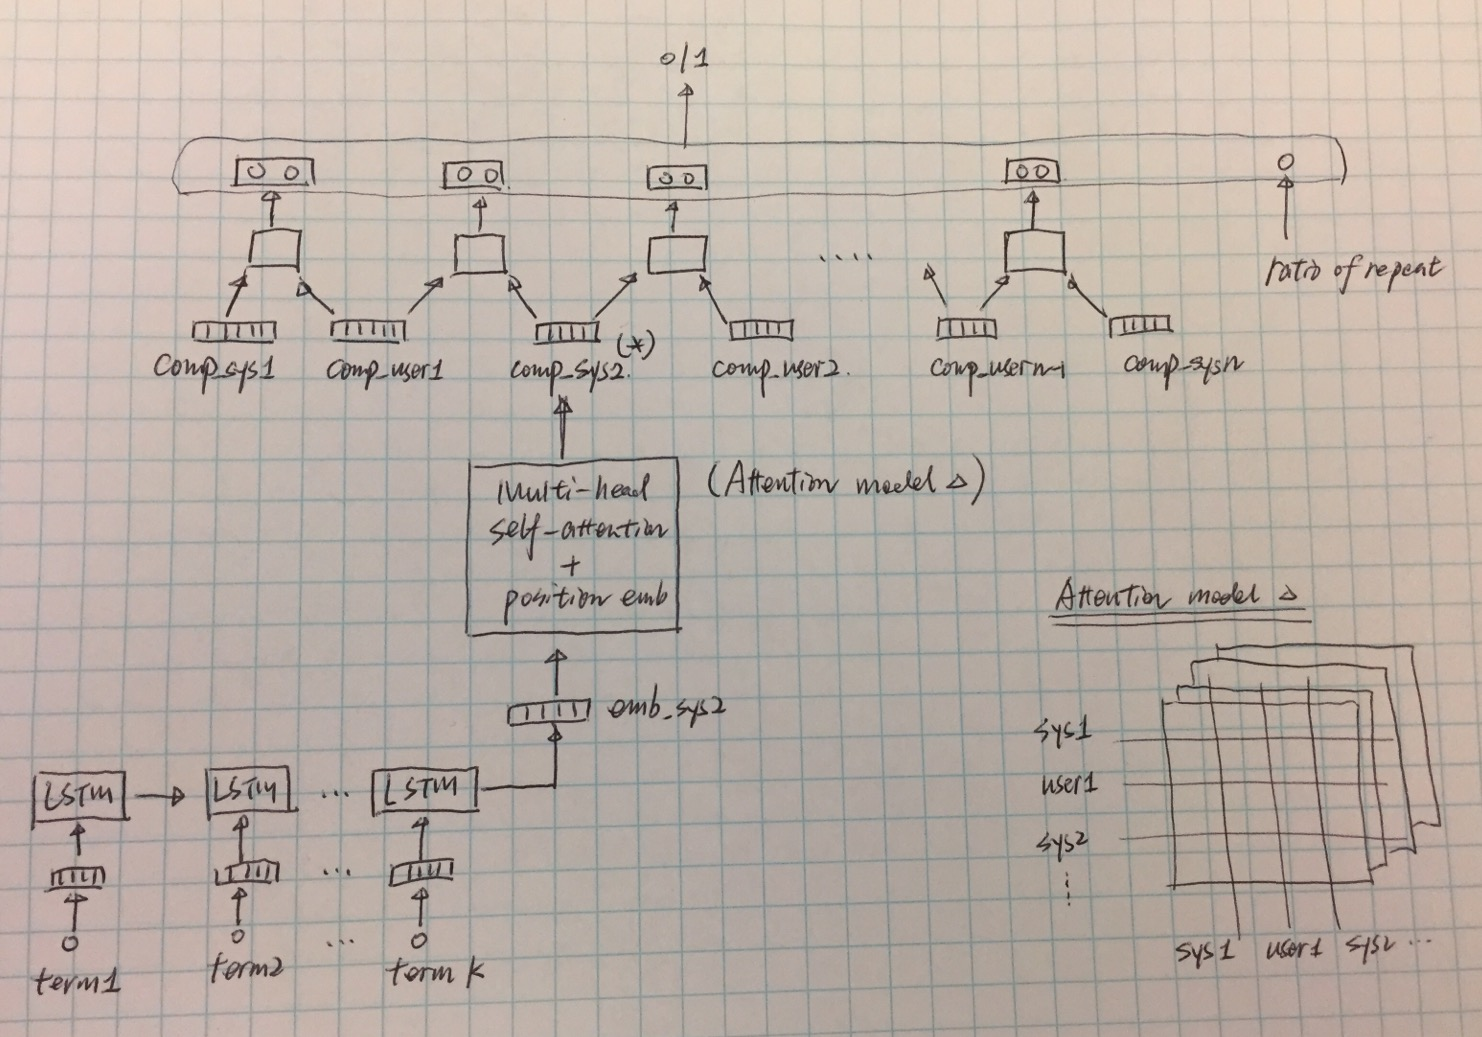 0/1
ratio of repeat
comp_sys1 comp_user1 comp_sys2. (*) comp_user2. .... comp_usern-1 comp_sysn
Multi-head
self-attention
+
position emb
(Attention model △)
emb_sys2
LSTM LSTM ... LSTM
...
term1 term2 ... term k
Attention model △
sys1
user1
sys2
sys1 user1 sys2 ...